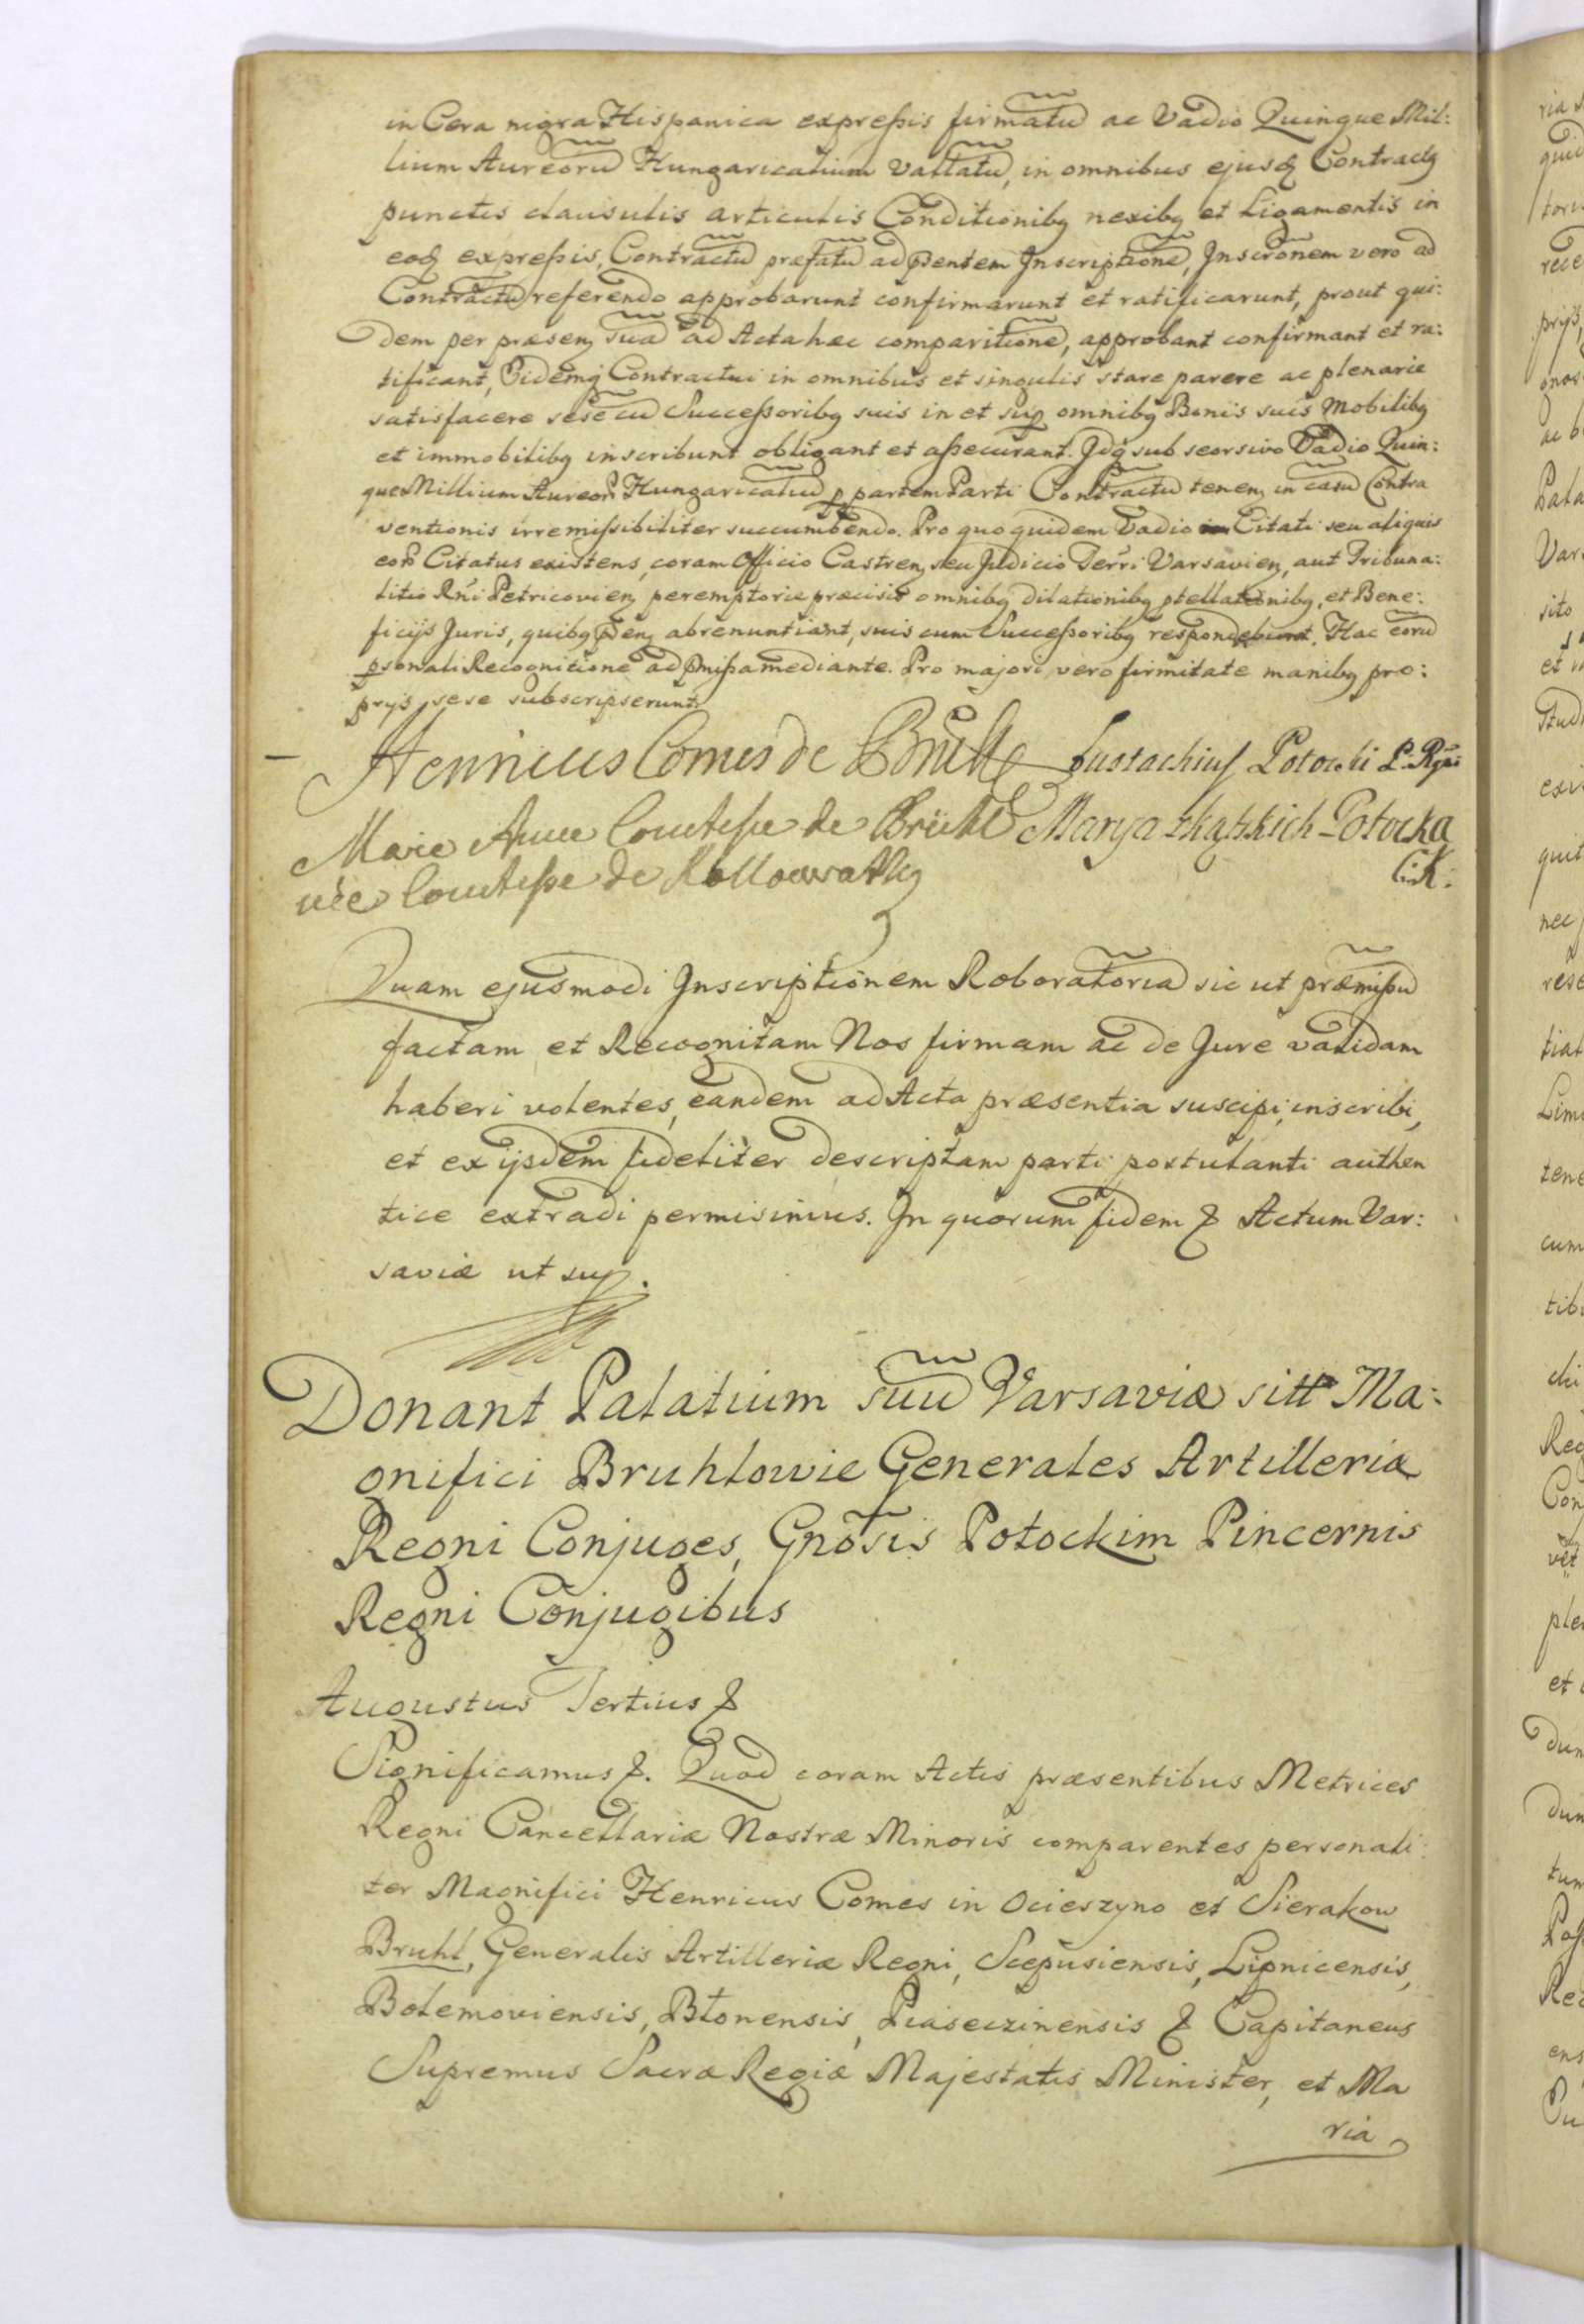 in Cera nigra Hispanica expressis firmatū ac Vadio Quinque Mil:
lium Aureorū Hungaricalium vallatū, in omnibus ejusq Contractq
punctis clausulis articulis Conditionibq nexibq et Ligamentis in
eoq expressis, Contractū præfatū ad pñentem Inscriptionē, Inscrōnem vero ad
Contractū referendo approbarunt confirmarunt et ratificarunt, prout qui:
dem per præsenz suā ad Acta hæc comparitionē, approbant confirmant et ra:
tificant, Eidemq Contractui in omnibus et singulis stare parere ac plenarie
satisfacere sese cū Successoribq suis in et sup omnibq Bonis suis Mobilibq
et immobilibq inscribunt obligant et assecurant. Idq sub seorsivo Vadio Quin:
que Millium Aureorū Hungaricaliū p partem Parti Contractū tenenz in casū Contra
ventionis irremissibiliter succumbendo. Pro quo quidem Vadio Citati seu aliquis
eorū Citatus existens, coram Officio Castrenz seu Judicio Terrī Varsavienz, aut Tribuna:
litio Rñi Petricovienz peremptorie præcisis omnibq dilationibq, et Bene:
ficijs Juris, quibq pñenz abrenuntiant, suis cum Successoribq respondebunt. Hac eorū
psonali Recognitione ad pmissa mediante. Pro majori vero firmitate manibq pro:
prijs sese subscripserunt.
– Henricus Comes de Brühl Eustachius Potocki P. Rgni
Marie Anne Comtesse de Brühl Marya Kątskich Potocka
née Comtesse de Kollowrath C.K:
Quam ejusmodi Inscriptionem Roboratoriā sic ut præmissū
factam et Recognitam Nos firmam ac de Jure validam
haberi volentes, eandem ad Acta præsentia suscipi, inscribi,
et ex ijsdem fideliter descriptam parti postulanti authen
tice extradi permisimus. In quorum fidem & Actum Var:
saviæ ut sup.
Donant Palatium suū Varsaviæ sitt Ma:
gnifici Bruhlowie Generales Artilleriæ
Regni Conjuges, Gnōsis Potockim Pincernis
Regni Conjugibus
Augustus Tertius &
Significamus &. Quod coram Actis præsentibus Metrices
Regni Cancellariæ Nostræ Minoris comparentes personali:
ter Magnifici Henricus Comes in Ocieszyno et Sierakow
Bruhl, Generalis Artilleriæ Regni, Scepusiensis, Lipnicensis,
Bolemoviensis, Błonensis, Piaseczinensis & Capitaneus
Supremus Sacræ Regiæ Majestatis Minister, et Ma
ria